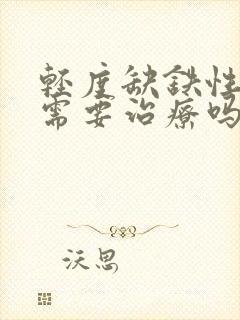 轻度缺铁性
需要治疗吗
沃思